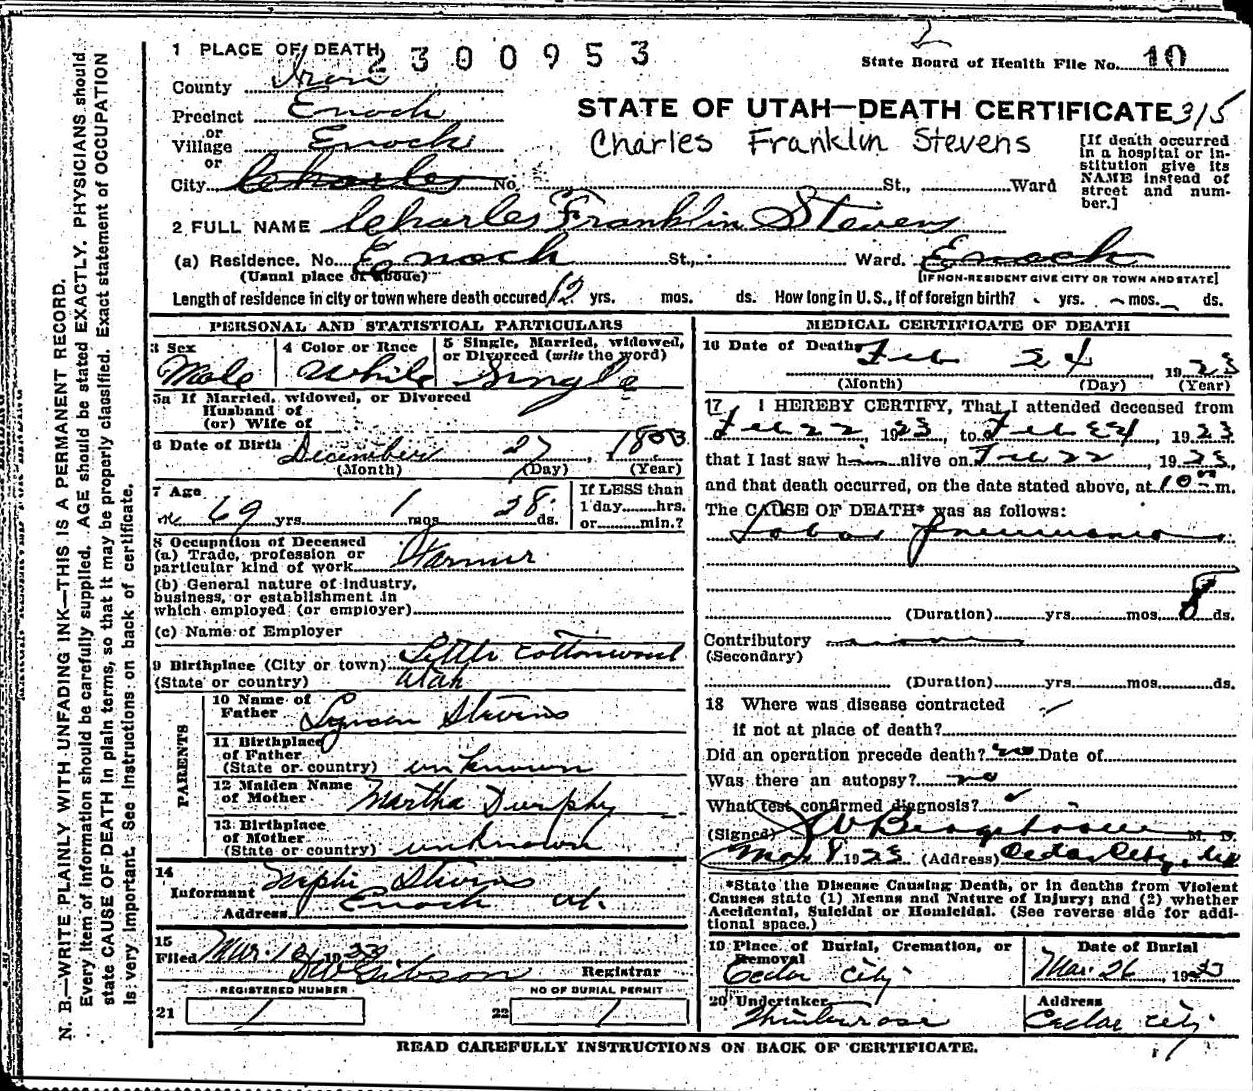 1 PLACE OF DEATH 2300953
State Board of Health File No. 10
County Iron
Precinct Enoch
or
Village Enoch
or
City Charles No. St., Ward
STATE OF UTAH—DEATH CERTIFICATE 315
Charles Franklin Stevens
[If death occurred
in a hospital or in-
stitution give its
NAME instead of
street and num-
ber.]
2 FULL NAME Charles Franklin Stevens
(a) Residence. No. Enoch St., Ward. Enoch
(Usual place of abode) [IF NON-RESIDENT GIVE CITY OR TOWN AND STATE]
Length of residence in city or town where death occured 12 yrs. mos. ds. How long in U.S., if of foreign birth? yrs. mos. ds.
N. B.—WRITE PLAINLY WITH UNFADING INK—THIS IS A PERMANENT RECORD.
Every item of information should be carefully supplied. AGE should be stated EXACTLY. PHYSICIANS should
state CAUSE OF DEATH in plain terms, so that it may be properly classified. Exact statement of OCCUPATION
is very important. See instructions on back of certificate.
PERSONAL AND STATISTICAL PARTICULARS
3 Sex
Male
4 Color or Race
White
5 Single, Married, widowed,
or Divorced (write the word)
Single
5a If Married, widowed, or Divorced
Husband of
(or) Wife of
6 Date of Birth December 27, 1853
(Month) (Day) (Year)
7 Age
69 yrs. 1 mos. 28 ds.
If LESS than
1 day hrs.
or min.?
8 Occupation of Deceased
(a) Trade, profession or
particular kind of work Farmer
(b) General nature of industry,
business, or establishment in
which employed (or employer)
(c) Name of Employer
9 Birthplace (City or town) Little Cottonwood
(State or country) Utah
PARENTS
10 Name of
Father Lyman Stevens
11 Birthplace
of Father
(State or country) unknown
12 Maiden Name
of Mother Martha Dunphy
13 Birthplace
of Mother
(State or country) unknown
14
Informant Nephi Stevens
Address Enoch Ut.
15
Filed Mar. 1923
D W Gibson Registrar
REGISTERED NUMBER NO OF BURIAL PERMIT
21 1 22 1
MEDICAL CERTIFICATE OF DEATH
16 Date of Death Feb 24 1923
(Month) (Day) (Year)
17 I HEREBY CERTIFY, That I attended deceased from
Feb 22, 1923, to Feb 24, 1923
that I last saw him alive on Feb 22, 1923,
and that death occurred, on the date stated above, at 10 m.
The CAUSE OF DEATH* was as follows:
Lobar pneumonia
(Duration) yrs. mos. 8 ds.
Contributory
(Secondary)
(Duration) yrs. mos. ds.
18 Where was disease contracted
if not at place of death?
Did an operation precede death? no Date of
Was there an autopsy? no
What test confirmed diagnosis?
(Signed) M. D.
Mar 8 1923 (Address) Cedar City, Ut
*State the Disease Causing Death, or in deaths from Violent
Causes state (1) Means and Nature of Injury; and (2) whether
Accidental, Suicidal or Homicidal. (See reverse side for addi-
tional space.)
19 Place of Burial, Cremation, or
Removal
Cedar City
Date of Burial
Mar. 26, 1923
20 Undertaker
Address
Cedar City
READ CAREFULLY INSTRUCTIONS ON BACK OF CERTIFICATE.